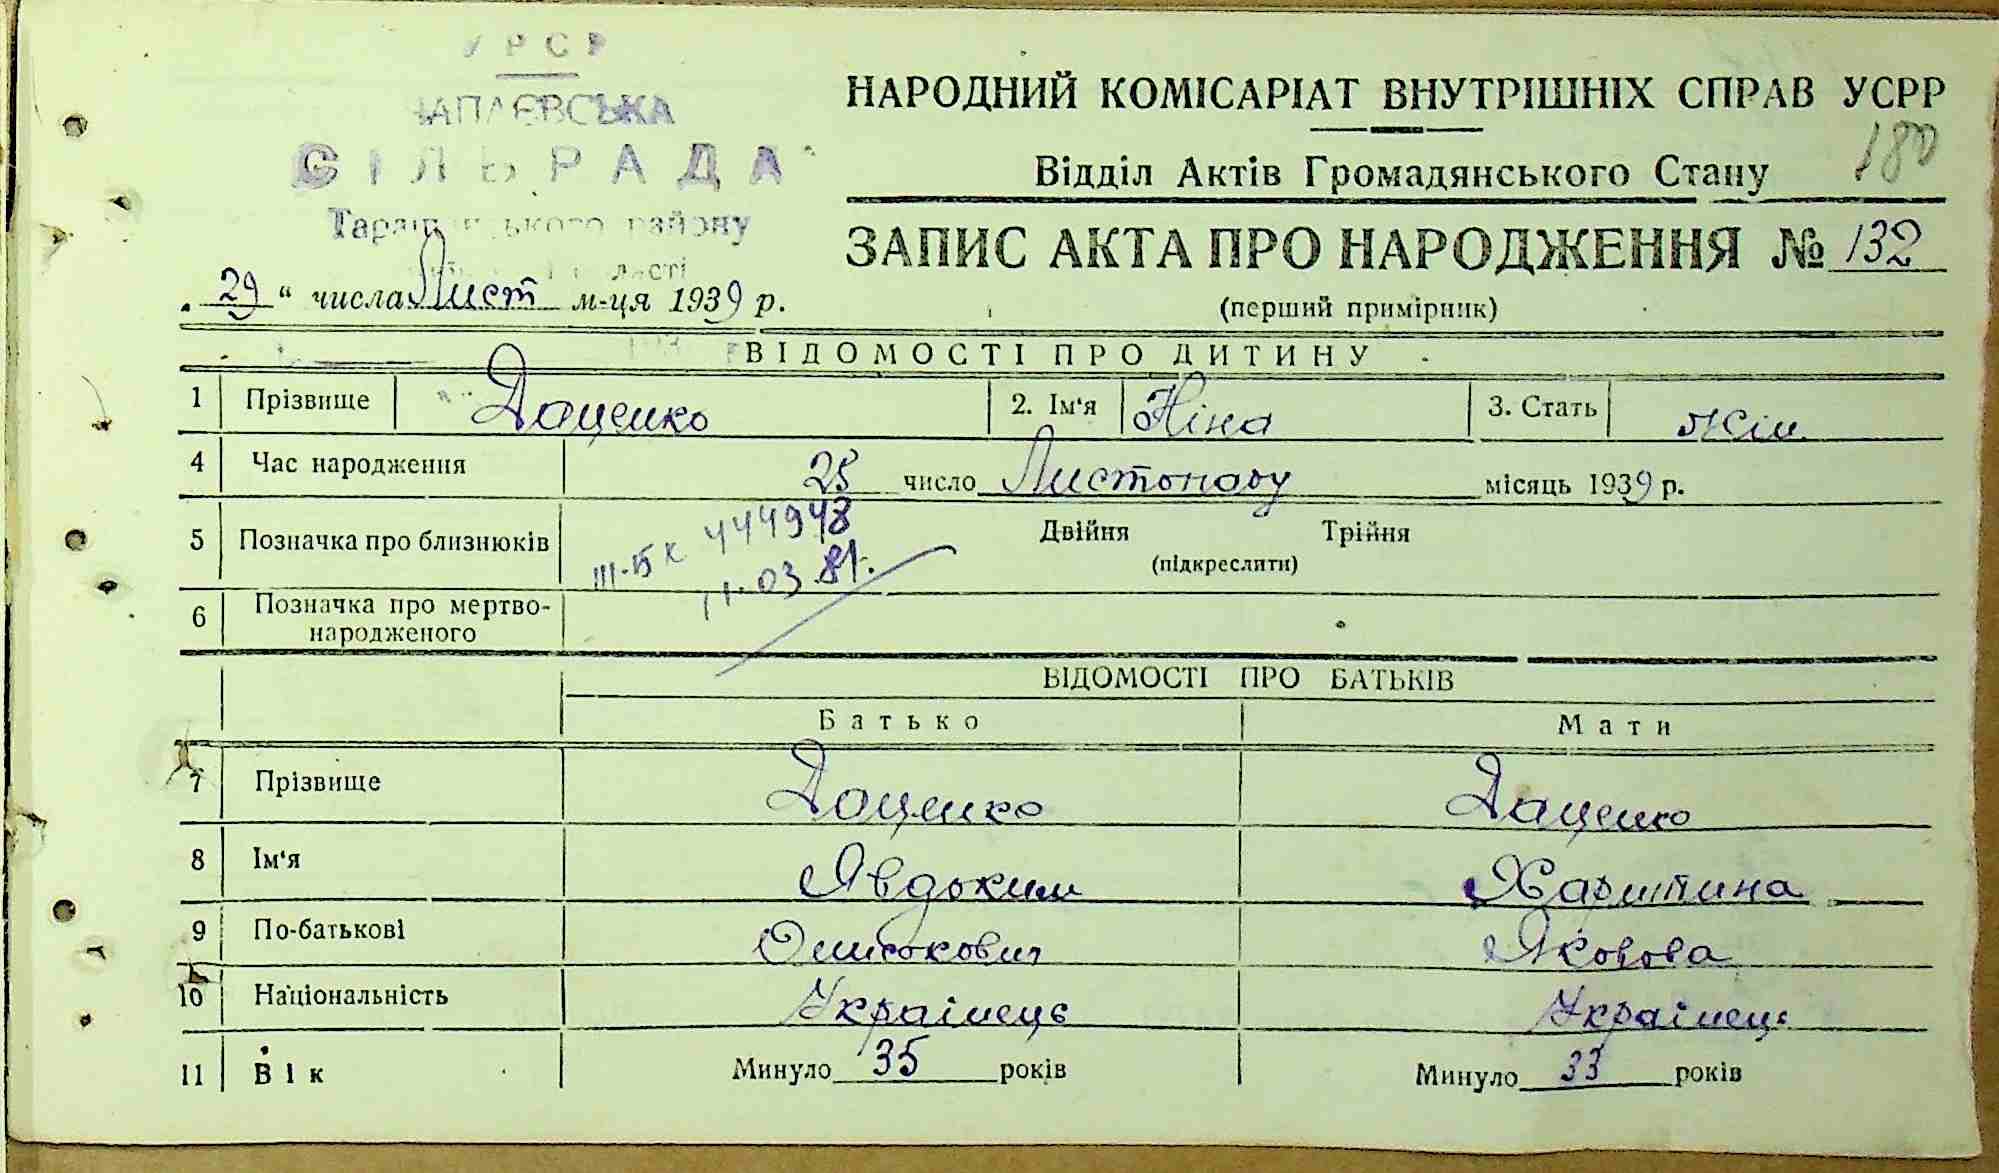 УРСР
ЧАПАЄВСЬКА
СІЛЬРАДА
району
НАРОДНИЙ КОМІСАРІАТ ВНУТРІШНІХ СПРАВ УСРР
180
Відділ Актів Громадянського Стану
ЗАПИС АКТА ПРО НАРОДЖЕННЯ № 132
(перший примірник)
„29“ числа Лист м-ця 1939 р.
ВІДОМОСТІ ПРО ДИТИНУ
1 Прізвище Доценко 2. Ім'я Ніна 3. Стать жін.
4 Час народження 25 число Листопаду місяць 1939 р.
5 Позначка про близнюків III-БК 444948 Двійня Трійня
11.03.81. (підкреслити)
6 Позначка про мертво-
народженого
ВІДОМОСТІ ПРО БАТЬКІВ
Батько Мати
7 Прізвище Доценко Доценко
8 Ім'я Явдоким Харитина
9 По-батькові Яковова
10 Національність Українець Українець
11 Вік Минуло 35 років Минуло 33 років